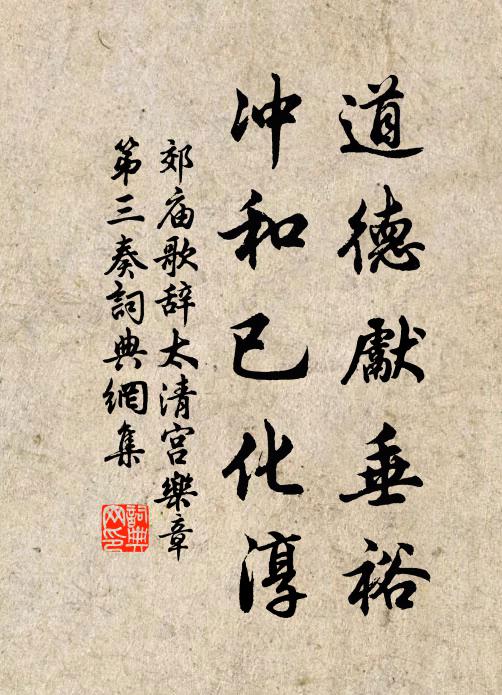 道德獻垂裕
冲和已化淳
郊庙歌辞太清宫樂章
第三奏詞典網集
詞典
网印